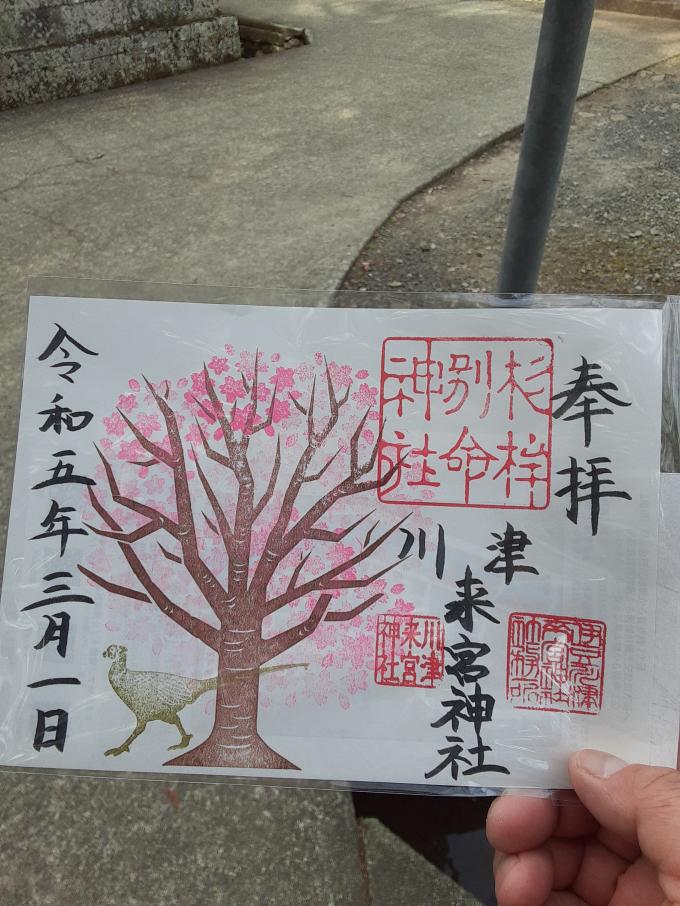 奉拝
杉桙
別命
神社
川津
来宮神社
川津
来宮
神社
令和五年三月一日